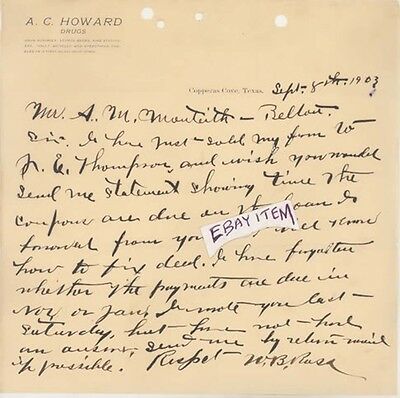 A. C. HOWARD
DRUGS
Copperas Cove, Texas, Sept. 8th, 1903
Mr. A. M. Monteith - Belton.
Sir. I have just sold my farm to
E. Thompson, and wish you would
send me statement showing time the
coupons are due on the loan I
borrowed from you know
how to fix deed. I have forgotten
whether the payments are due in
Nov or Jan. I wrote you last
Saturday, but have not had
an answer, send me by return mail
if possible. Respct W. B. Ross
EBAY ITEM